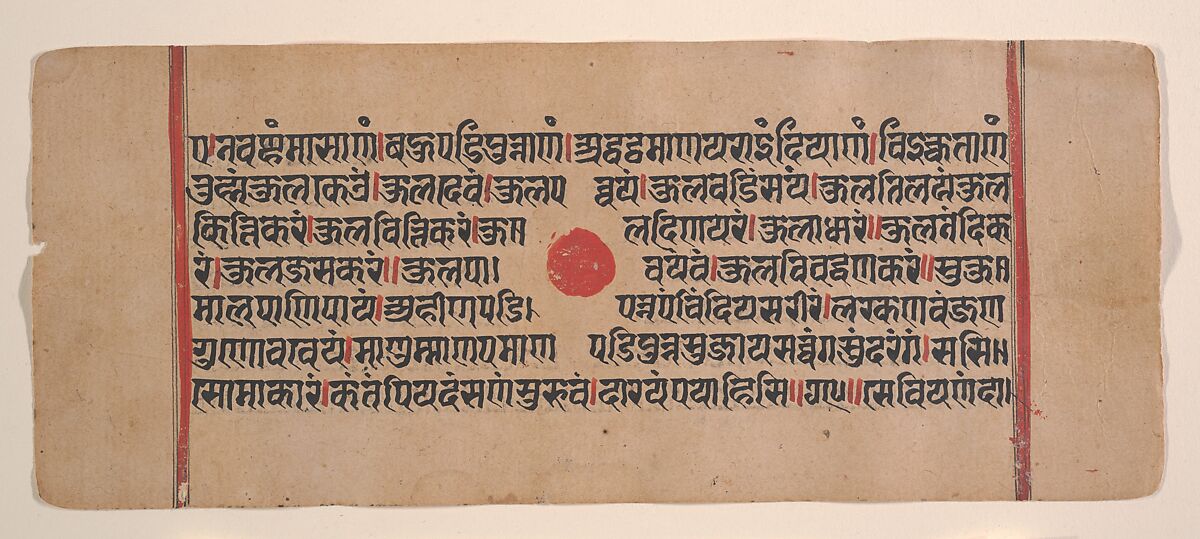 ए।नवण्हंमासाणं।बहुपडिपुन्नाणं।अद्धट्ठमाणयराइंदियाणं।विइक्कंताणं
अम्हंकुलकेउं।कुलदीवं।कुलपव्वयं।कुलवडिंसयं।कुलतिलयं।कुल
कित्तिकरं।कुलवित्तिकरं।कु॥लदिणयरं।कुलाधारं॥कुलनंदिक
रं।कुलजसकरं॥कुलपा।यवं।कुलविवद्धणकरं॥सुकु॥
मालपाणिपायं।अहीणपडि।पुन्नपंचिंदियसरीरं।लरकणवंजण
गुणोववेयं।माणुम्माणपमाणपडिपुन्नसुजायसव्वंगसुंदरंगं।ससि॥
सोमाकारं।कंतंपियदंसणंसुरुवं।दारयंपयाहिसि॥सेवियणंदा।